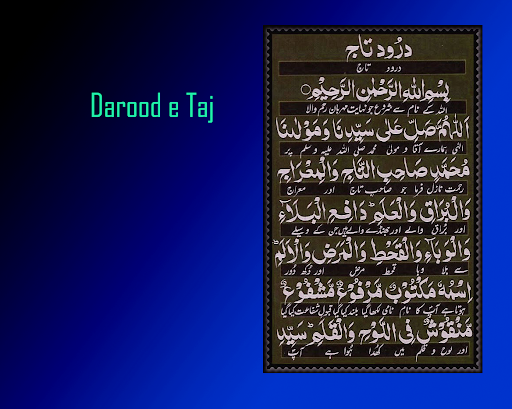 Darood e Taj
درود تاج
درود تاج
بِسْمِ اللهِ الرَّحْمٰنِ الرَّحِیْمِ
اللہ کے نام سے شروع جو نہایت مہربان رحم والا
اَللّٰهُمَّ صَلِّ عَلٰی سَیِّدِنَا وَمَوْلٰینَا
الٰہی ہمارے آقا و مولیٰ محمد صلی اللہ علیہ وسلم پر
مُحَمَّدٍ صَاحِبِ التَّاجِ وَالْمِعْرَاجِ
رحمت نازل فرما جو صاحب تاج اور معراج
وَالْبُرَاقِ وَالْعَلَمِ دَافِعِ الْبَلَآءِ
اور براق والے اور جھنڈے والے ہیں جن کے وسیلے
وَالْوَبَآءِ وَالْقَحْطِ وَالْمَرَضِ وَالْاَلَمِ
سے بلا وبا قحط مرض اور دکھ دور
اِسْمُهٗ مَکْتُوْبٌ مَّرْفُوْعٌ مَّشْفُوْعٌ
ہوتا ہے آپ کا نام نامی لکھا گیا بلند کیا گیا قبول شفاعت کیا گیا
مَّنْقُوْشٌ فِی اللَّوْحِ وَالْقَلَمِ سَیِّدِ
اور لوح و قلم میں کھدا ہوا ہے آپ